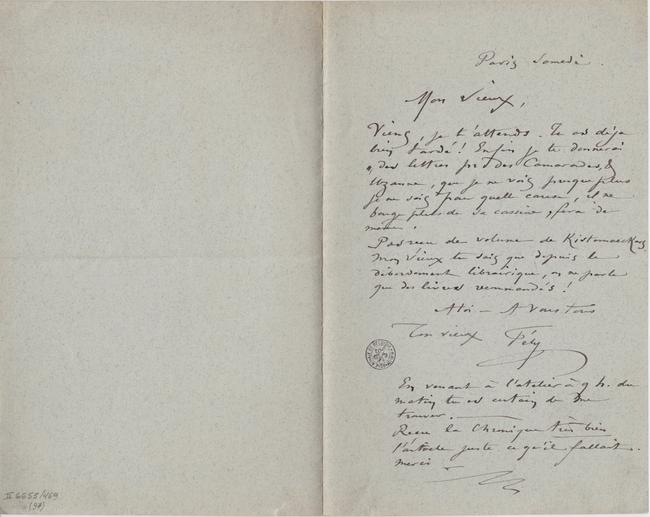 Paris Samedi.
Mon Vieux,
Viens, je t'attends. Tu as déja
bien tardé! Enfin je te donnerai
des lettres pr des Camarades, &
Uzanne, que je ne vois presque plus
je ne sais par quelle cause, il ne
bouge plus de sa cassine, fera de
même!
Pas reçu de volume de Kistemaeckers
mon vieux tu sais que depuis le
débordement librairique, on ne parle
que des livres recommandés!
A toi — A vous tous
Ton vieux Fély
En venant à l'atelier à 9 h. du
matin tu es certain de me
trouver.
Reçu la Chronique très bien
l'attache juste ce qu'il fallait.
merci
II 6655/469
(97)